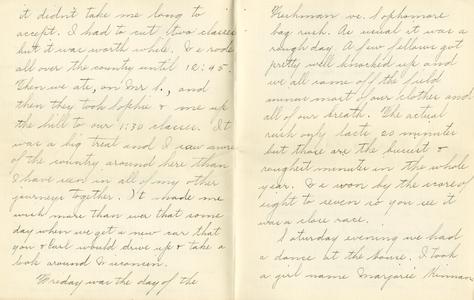 it didn't take me long to
accept. I had to cut two classes
but it was worth while. We rode
all over the county until 12:45.
Then we ate, on Mr. S., and
then they took Sophie & me up
the hill to our 1:30 classes. It
was a big treat and I saw more
of the country around here than
I have seen in all of my other
journeys together. It made me
wish more than ever that some
day when we get a new car that
you & Earl would drive up & take a
look around Wisconsin.
Friday was the day of the
Freshman vs. Sophomore
bag rush. As usual it was a
rough day. A few fellows got
pretty well knocked up and
we all came off the field
minus most of our clothes and
all of our breath. The actual
rush only lasts 20 minutes
but those are the busiest &
roughest minutes in the whole
year. We won by the score of
eight to seven so you see it
was a close race.
Saturday evening we had
a dance at the house. I took
a girl name Marjorie